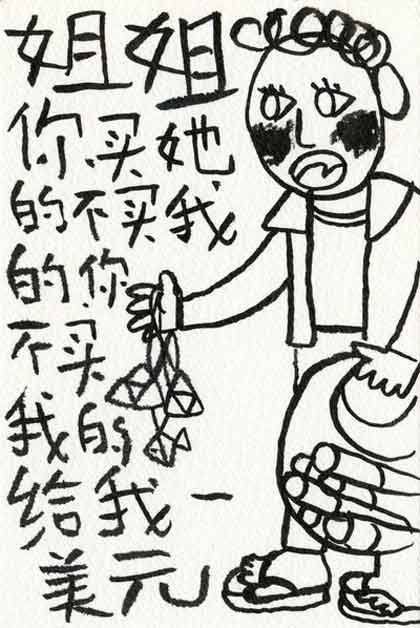 姐姐
你买她
的不买我
的你
不买
我的
给我一
美元